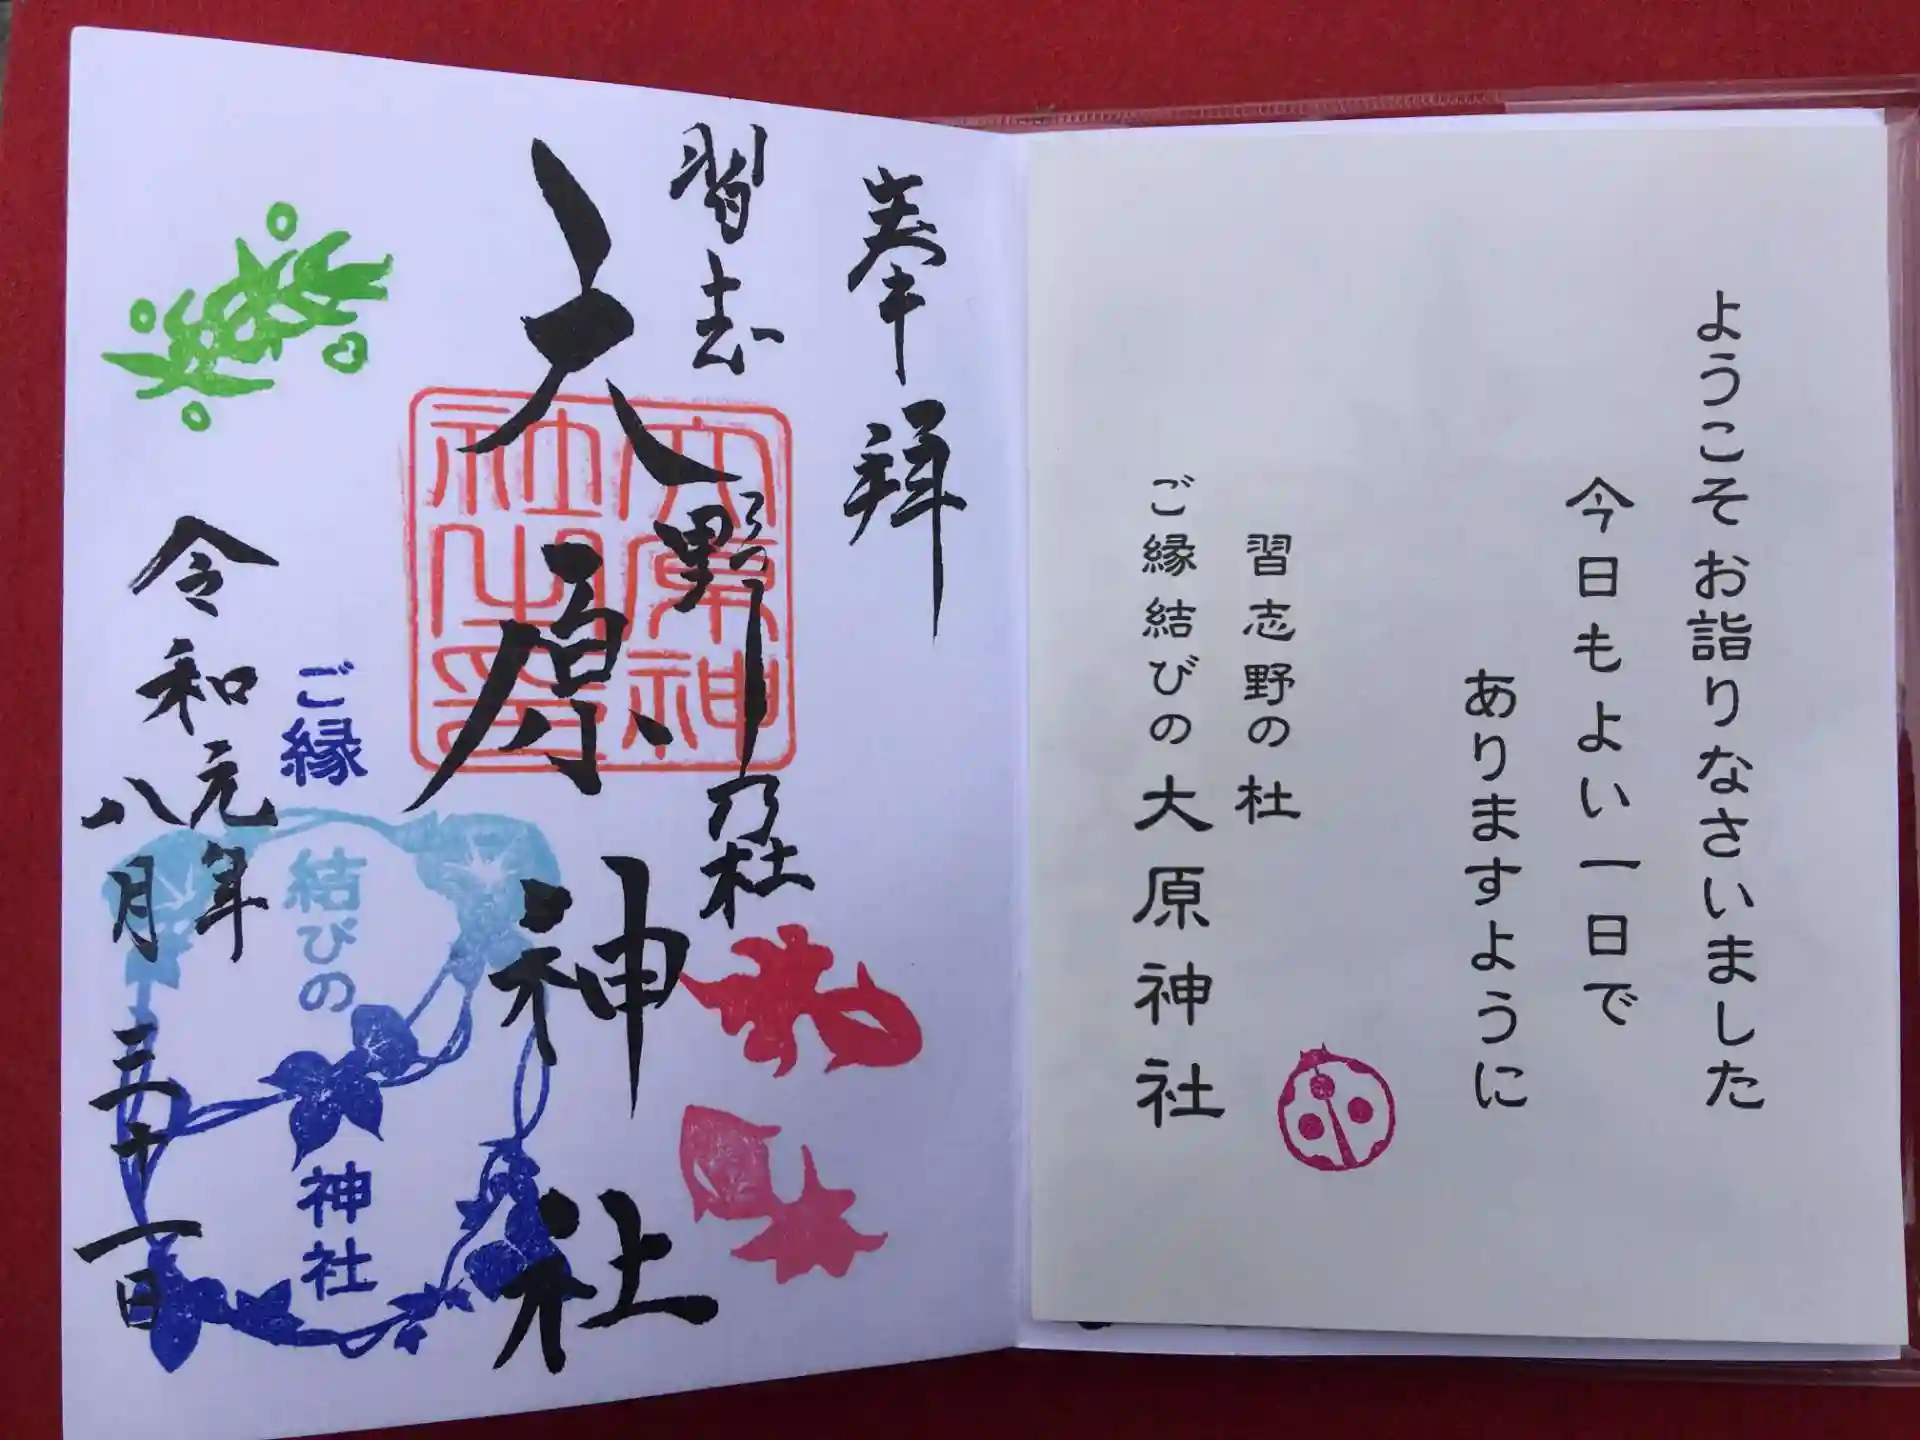 ようこそお詣りなさいました
今日もよい一日で
ありますように
習志野の杜
ご縁結びの大原神社
奉拝
習志野乃杜
大原神社
大原神
社之印
ご縁
結びの
神社
令和元年
八月三十一日